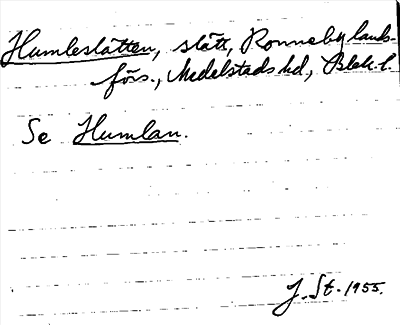 Humleslätten, slätt, Ronneby lands-
förs., Medelstads hd, Blek. l.
Se Humlan.
J. St. 1955.